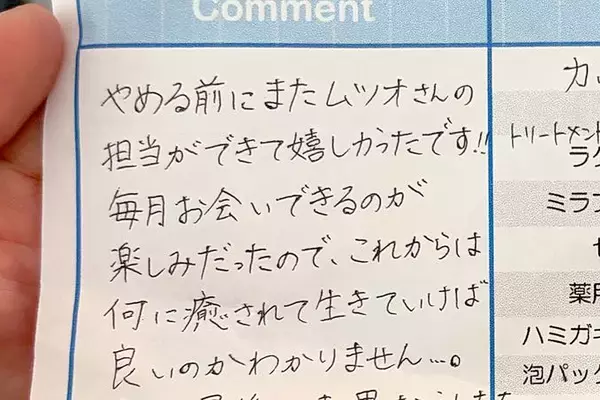 Comment
やめる前にまたムツオさんの
担当ができて嬉しかったです!!
毎月お会いできるのが
楽しみだったので、これからは
何に癒されて生きていけば
良いのかわかりません…。
カ
トリートメント
ラク
ミラブ
セ
薬用
ハミガキ
泡パック